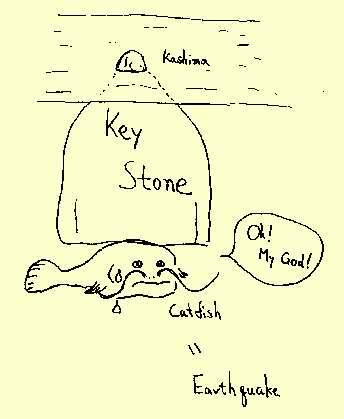 Kashima
Key
Stone
Oh!
My God!
Catfish
=
Earthquake